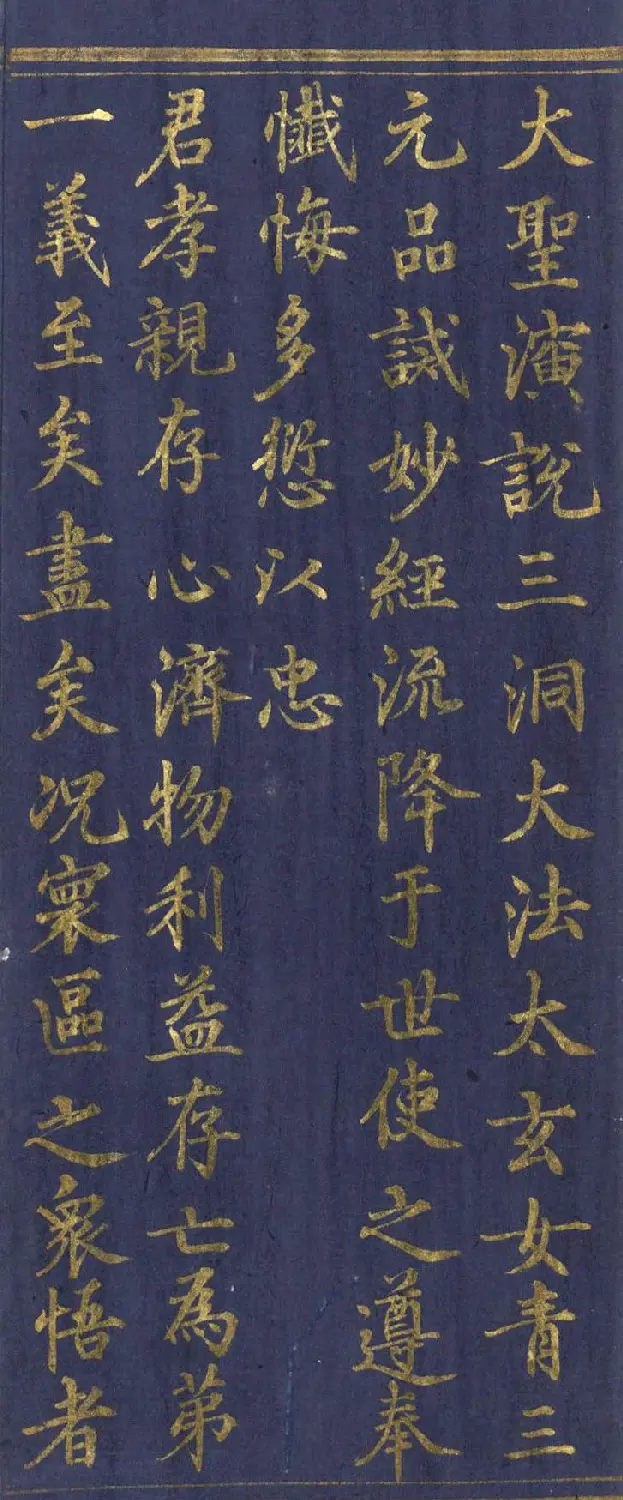 大聖演說三洞大法太玄女青三
元品誡妙經流降于世使之遵奉
懺悔多愆以忠
君孝親存心濟物利益存亡為弟
一義至矣盡矣况寰區之衆悟者